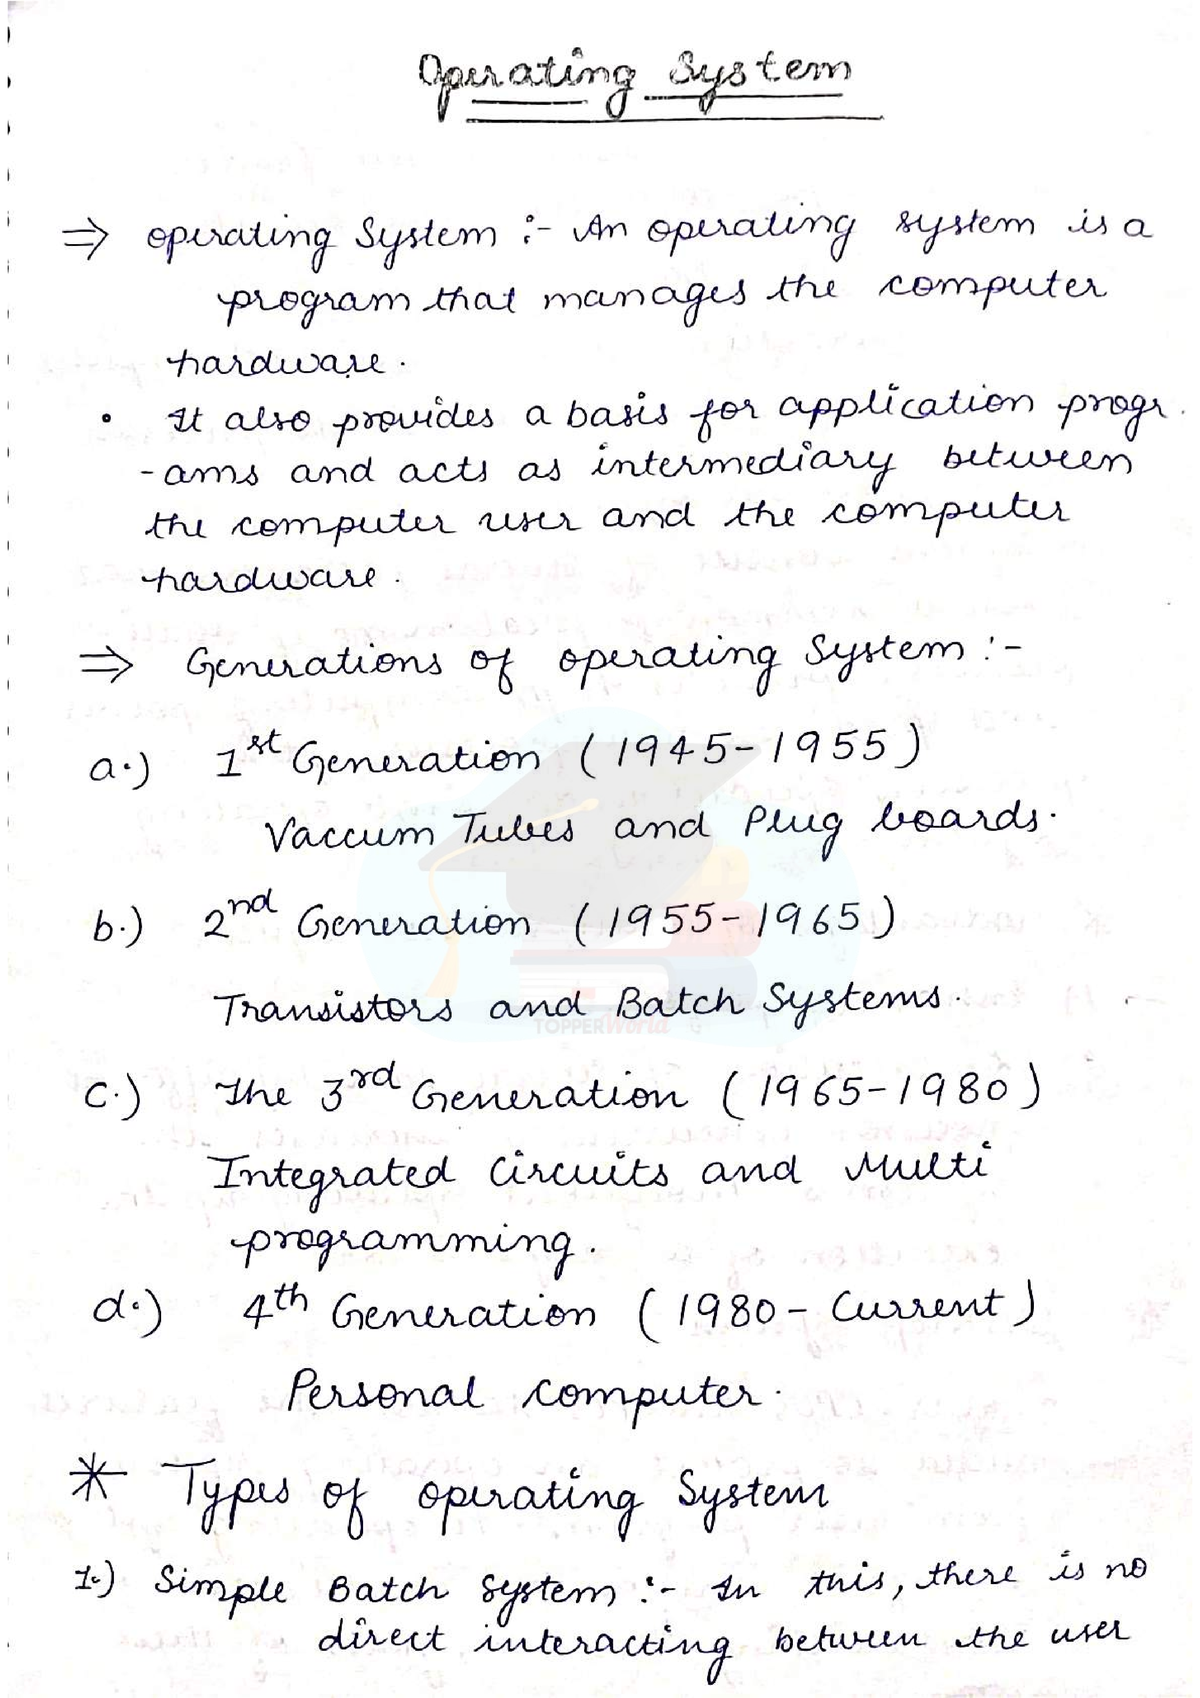 Operating System
⇒ operating System :- An operating system is a
program that manages the computer
hardware.
• It also provides a basis for application progr.
-ams and acts as intermediary between
the computer user and the computer
hardware.
⇒ Generations of operating System :-
a.) 1st Generation (1945-1955)
Vaccum Tubes and Plug boards.
b.) 2nd Generation (1955-1965)
Transistors and Batch Systems.
TOPPERWorld
C.) The 3rd Generation (1965-1980)
Integrated Circuits and Multi
programming.
d.) 4th Generation (1980- Current)
Personal computer.
* Types of operating System
1.) Simple Batch System :- In this, there is no
direct interacting between the user